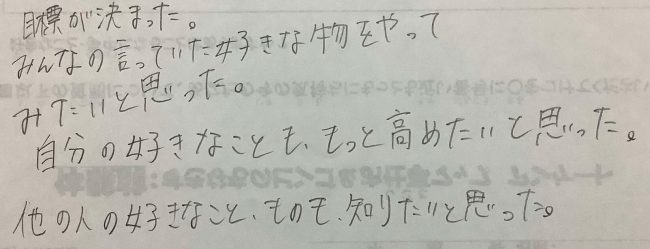 目標が決まった。
みんなの言っていた好きな物をやって
みたいと思った。
自分の好きなことも、もっと高めたいと思った。
他の人の好きなこと、ものも、知りたいと思った。